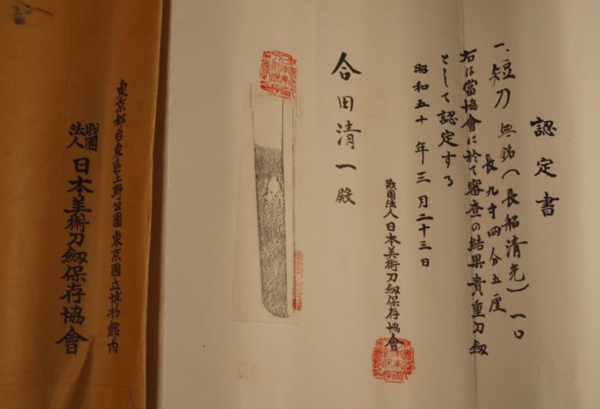 認定書
一、短刀 無銘(長船清光) 一口
長九寸四分五厘
右は當協會に於て審査の結果貴重刀劔
として認定する
昭和五十年三月二十三日
財團法人日本美術刀劔保存協會
合田清一殿
東京都台東區上野公園東京國立博物館内
財團法人 日本美術刀劔保存協會